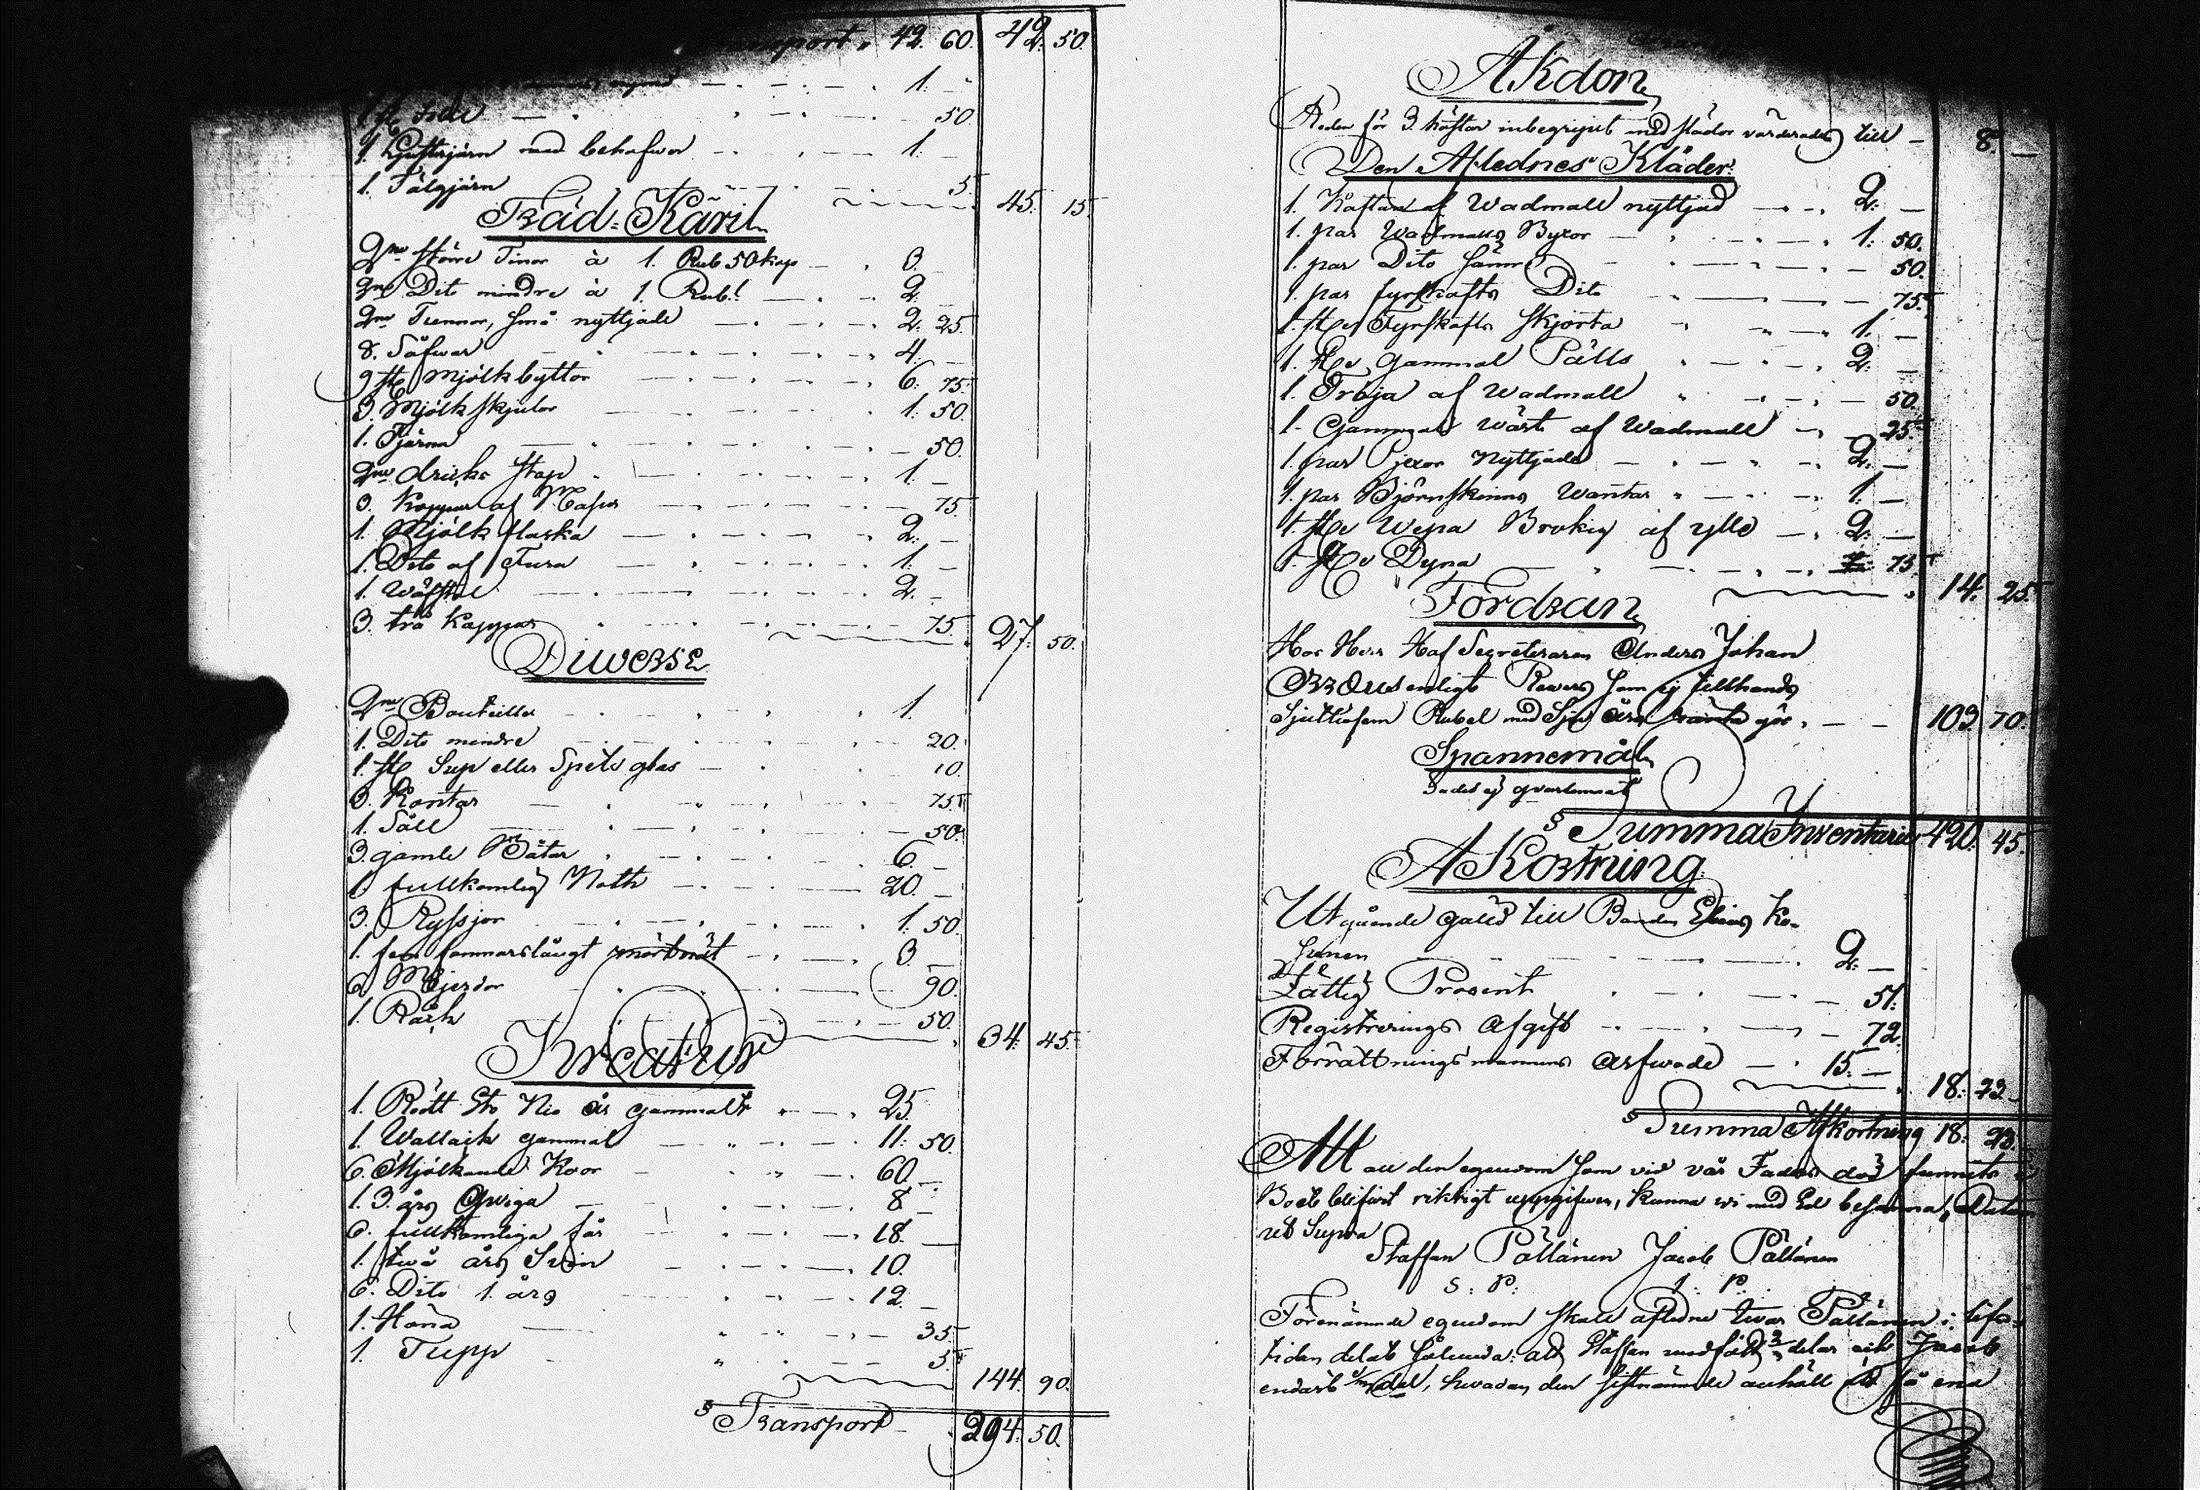 Transport „ 42. 60. 42. 50.
1. „
1 st fiil 50.
1. Ljusterjärn med behofwer 1. —
1. Tälgjärn 5. 45. 15.
Träd-Käril
2ne större Tinor à 1. Rub 50 kop 3. —
2ne Dito mindre à 1. Rubl 2. —
2ne Tunnor, små nyttjade 2. 25.
8. Såfwar 4. —
9 st Mjölkbyttor 6. 75.
3. Mjölk skjulor 1. 50.
1. Tjärna 50.
2ne dricks stop 1. —
3. Koppar af Masur 75.
1. Mjölk flaska 2. —
1. Dito af Fura 1. —
1. Wäfstol 2. —
3. trä kappar 75. 27. 50.
Diverse
2ne Bouteiller 1.
1. Dito mindre 20.
1. st Sup eller Spets glas 10.
3. Kontar 75.
1. Såll 50.
3. gamle Båtar 6. —
1. fullkomlig Noth 20. —
3. Ryssjor 1. 50.
1. fem famnarslångt mörtnät 3. —
6. Mjerdor 90.
1. Råck 50. 34. 45.
Kreatur
1. Rödt Sto Nio år gammalt 25.
1. Wallack gammal 11. 50.
6. Mjölkande Koor 60. —
1. 3. års Qwiga 8. —
6. fullkomliga får 18. —
1. två års Swin 10.
6. Dito 1. års 12. —
1. Höna 35.
1. Tupp 5.
144. 90.
Transport 294. 50.
Åkdon
Reden för 3. hästar inbegripit med slädor värderades till — 8. —
Den Aflednes Kläder.
1. Kaftan af Wadmall nyttjad 2. —
1. par Wadmalls Byxor 1. 50.
1. par Dito sämre 50.
1. par fyrskafts Dito 75.
1. st Fyrskafts Skjorta 1. —
1. st gammal Pälls 2. —
1. Tröja af Wadmall 50.
1. Gammal Wäst af Wadmall 25.
1. par Pjexor Nyttjade 2. —
1. par Björnskinns Wantar 1. —
1. st Wepa Brokig af ylle 2. —
1. st Dyna 75.
14. 25.
Fordran
Hos Herr Hof Secreteraren Anders Johan
Brous enligt Revers som ej tillhands
Sjuttiofem Rubel med Sju års ränta gör 103. 70.
Spannemål
Fades ej qvarlemnat
Summa Inventarie 420. 45.
Afkortning
Utgående gäld till Bonden Elias Ko-
honen 2. —
Fattig Procent 51.
Registrerings Afgift 72.
Förrättningsmannens arfwode 15. —
18. 23.
Summa Afkortning 18. 23.
Att all den egendom som vid vår Faders död funnits i
Boet blifvit riktigt uppgifwen, kunna wi med Ed besanna, Datum
ut Supra
Staffan Pöllänen Jacob Pöllänen
S: P: J: P:
Förenämnde egendom skall aflidne Iwar Pöllänen i lifs-
tiden delat sålunda: att Staffan undfått 2/3 delar och Jacob
endast 1/3 del, hwaraf den sistnämnde anhållt att få sina